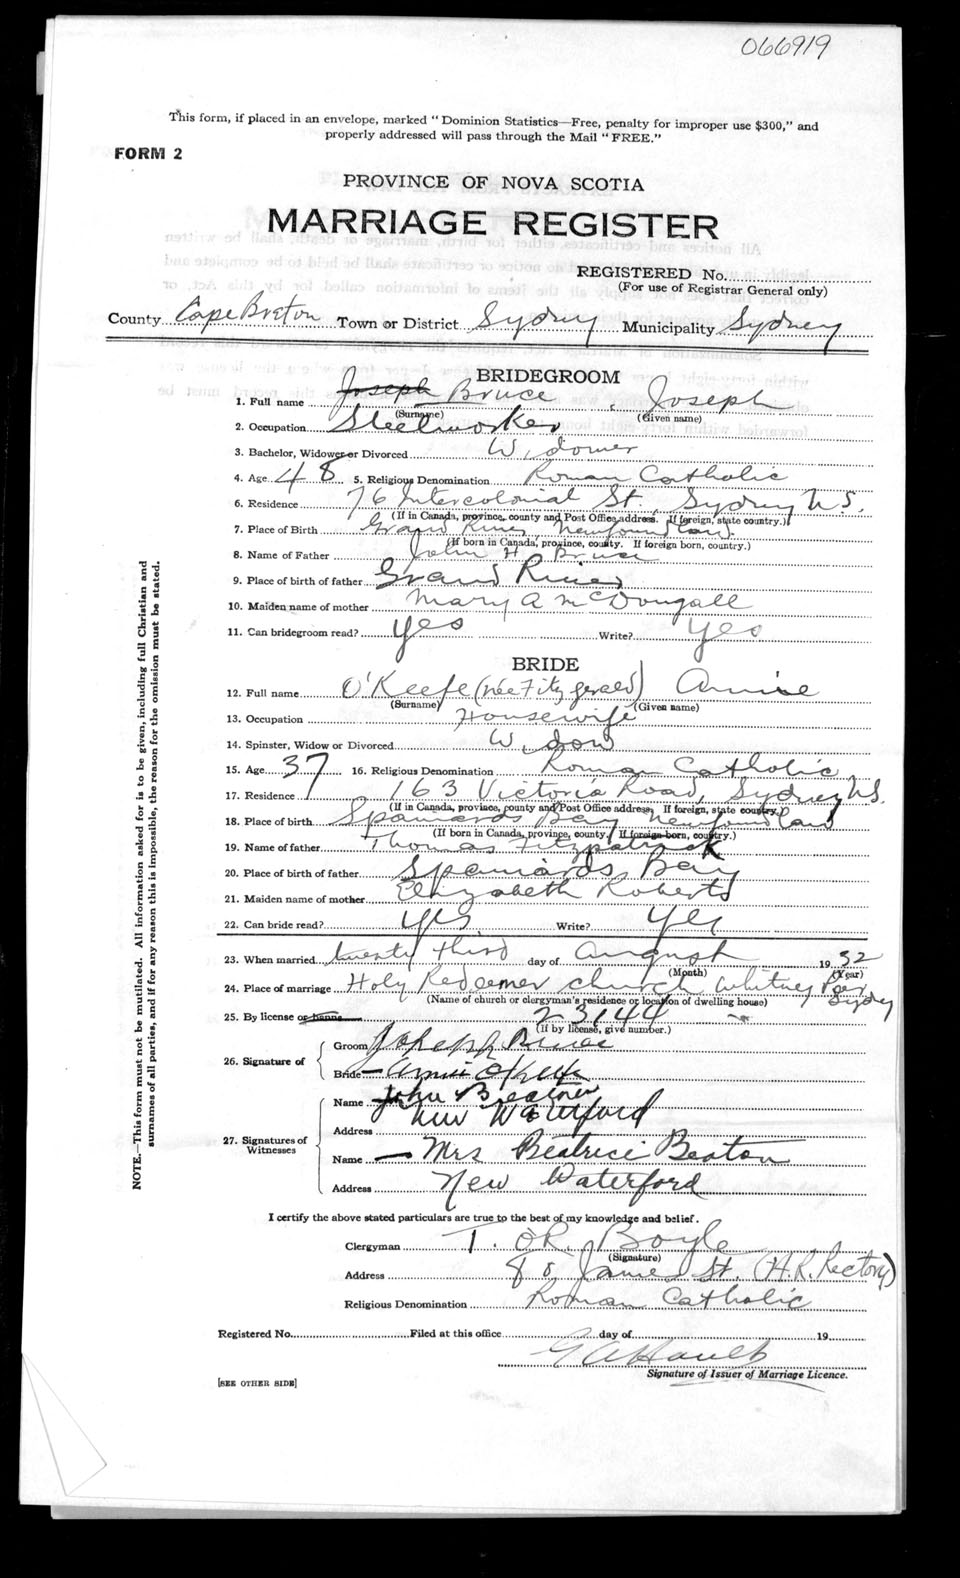 066919
This form, if placed in an envelope, marked "Dominion Statistics—Free, penalty for improper use $300," and
properly addressed will pass through the Mail "FREE."
FORM 2
PROVINCE OF NOVA SCOTIA
MARRIAGE REGISTER
REGISTERED No.
(For use of Registrar General only)
County Cape Breton Town or District Sydney Municipality Sydney
BRIDEGROOM
1. Full name Joseph Bruce, Joseph
(Surname) (Given name)
2. Occupation Steelworker
3. Bachelor, Widower or Divorced Widower
4. Age 48 5. Religious Denomination Roman Catholic
6. Residence 76 Intercolonial St., Sydney N.S.
(If in Canada, province, county and Post Office address. If foreign, state country.)
7. Place of Birth Grand River Newfoundland
(If born in Canada, province, county. If foreign born, country.)
8. Name of Father John H Bruce
9. Place of birth of father Grand River
10. Maiden name of mother Mary A McDougall
11. Can bridegroom read? yes Write? yes
BRIDE
12. Full name O'Keefe (née Fitzgerald) Annie
(Surname) (Given name)
13. Occupation Housewife
14. Spinster, Widow or Divorced Widow
15. Age 37 16. Religious Denomination Roman Catholic
17. Residence 163 Victoria Road, Sydney N.S.
(If in Canada, province, county and Post Office address, If foreign, state country.)
18. Place of birth Spaniards Bay Newfoundland
(If born in Canada, province, county. If foreign born, country.)
19. Name of father Thomas Fitzpatrick
20. Place of birth of father Spaniards Bay
21. Maiden name of mother Elizabeth Roberts
22. Can bride read? yes Write? yes
23. When married twenty third day of August 1932
(Month) (Year)
24. Place of marriage Holy Redeemer church Whitney Pier Sydney
(Name of church or clergyman's residence or location of dwelling house)
25. By license or banns 23144
(If by license, give number.)
26. Signature of
Groom Joseph Bruce
Bride Annie O'Keefe
27. Signatures of Witnesses
Name John
Address New Waterford
Name Mrs Beatrice Beaton
Address New Waterford
I certify the above stated particulars are true to the best of my knowledge and belief.
Clergyman T. O'R. Boyle
(Signature)
Address 80 James St. (H.R. Rectory)
Religious Denomination Roman Catholic
Registered No. Filed at this office day of 19
Signature of Issuer of Marriage Licence.
[SEE OTHER SIDE]
NOTE.—This form must not be mutilated. All information asked for is to be given, including full Christian and
surnames of all parties, and if for any reason this is impossible, the reason for the omission must be stated.